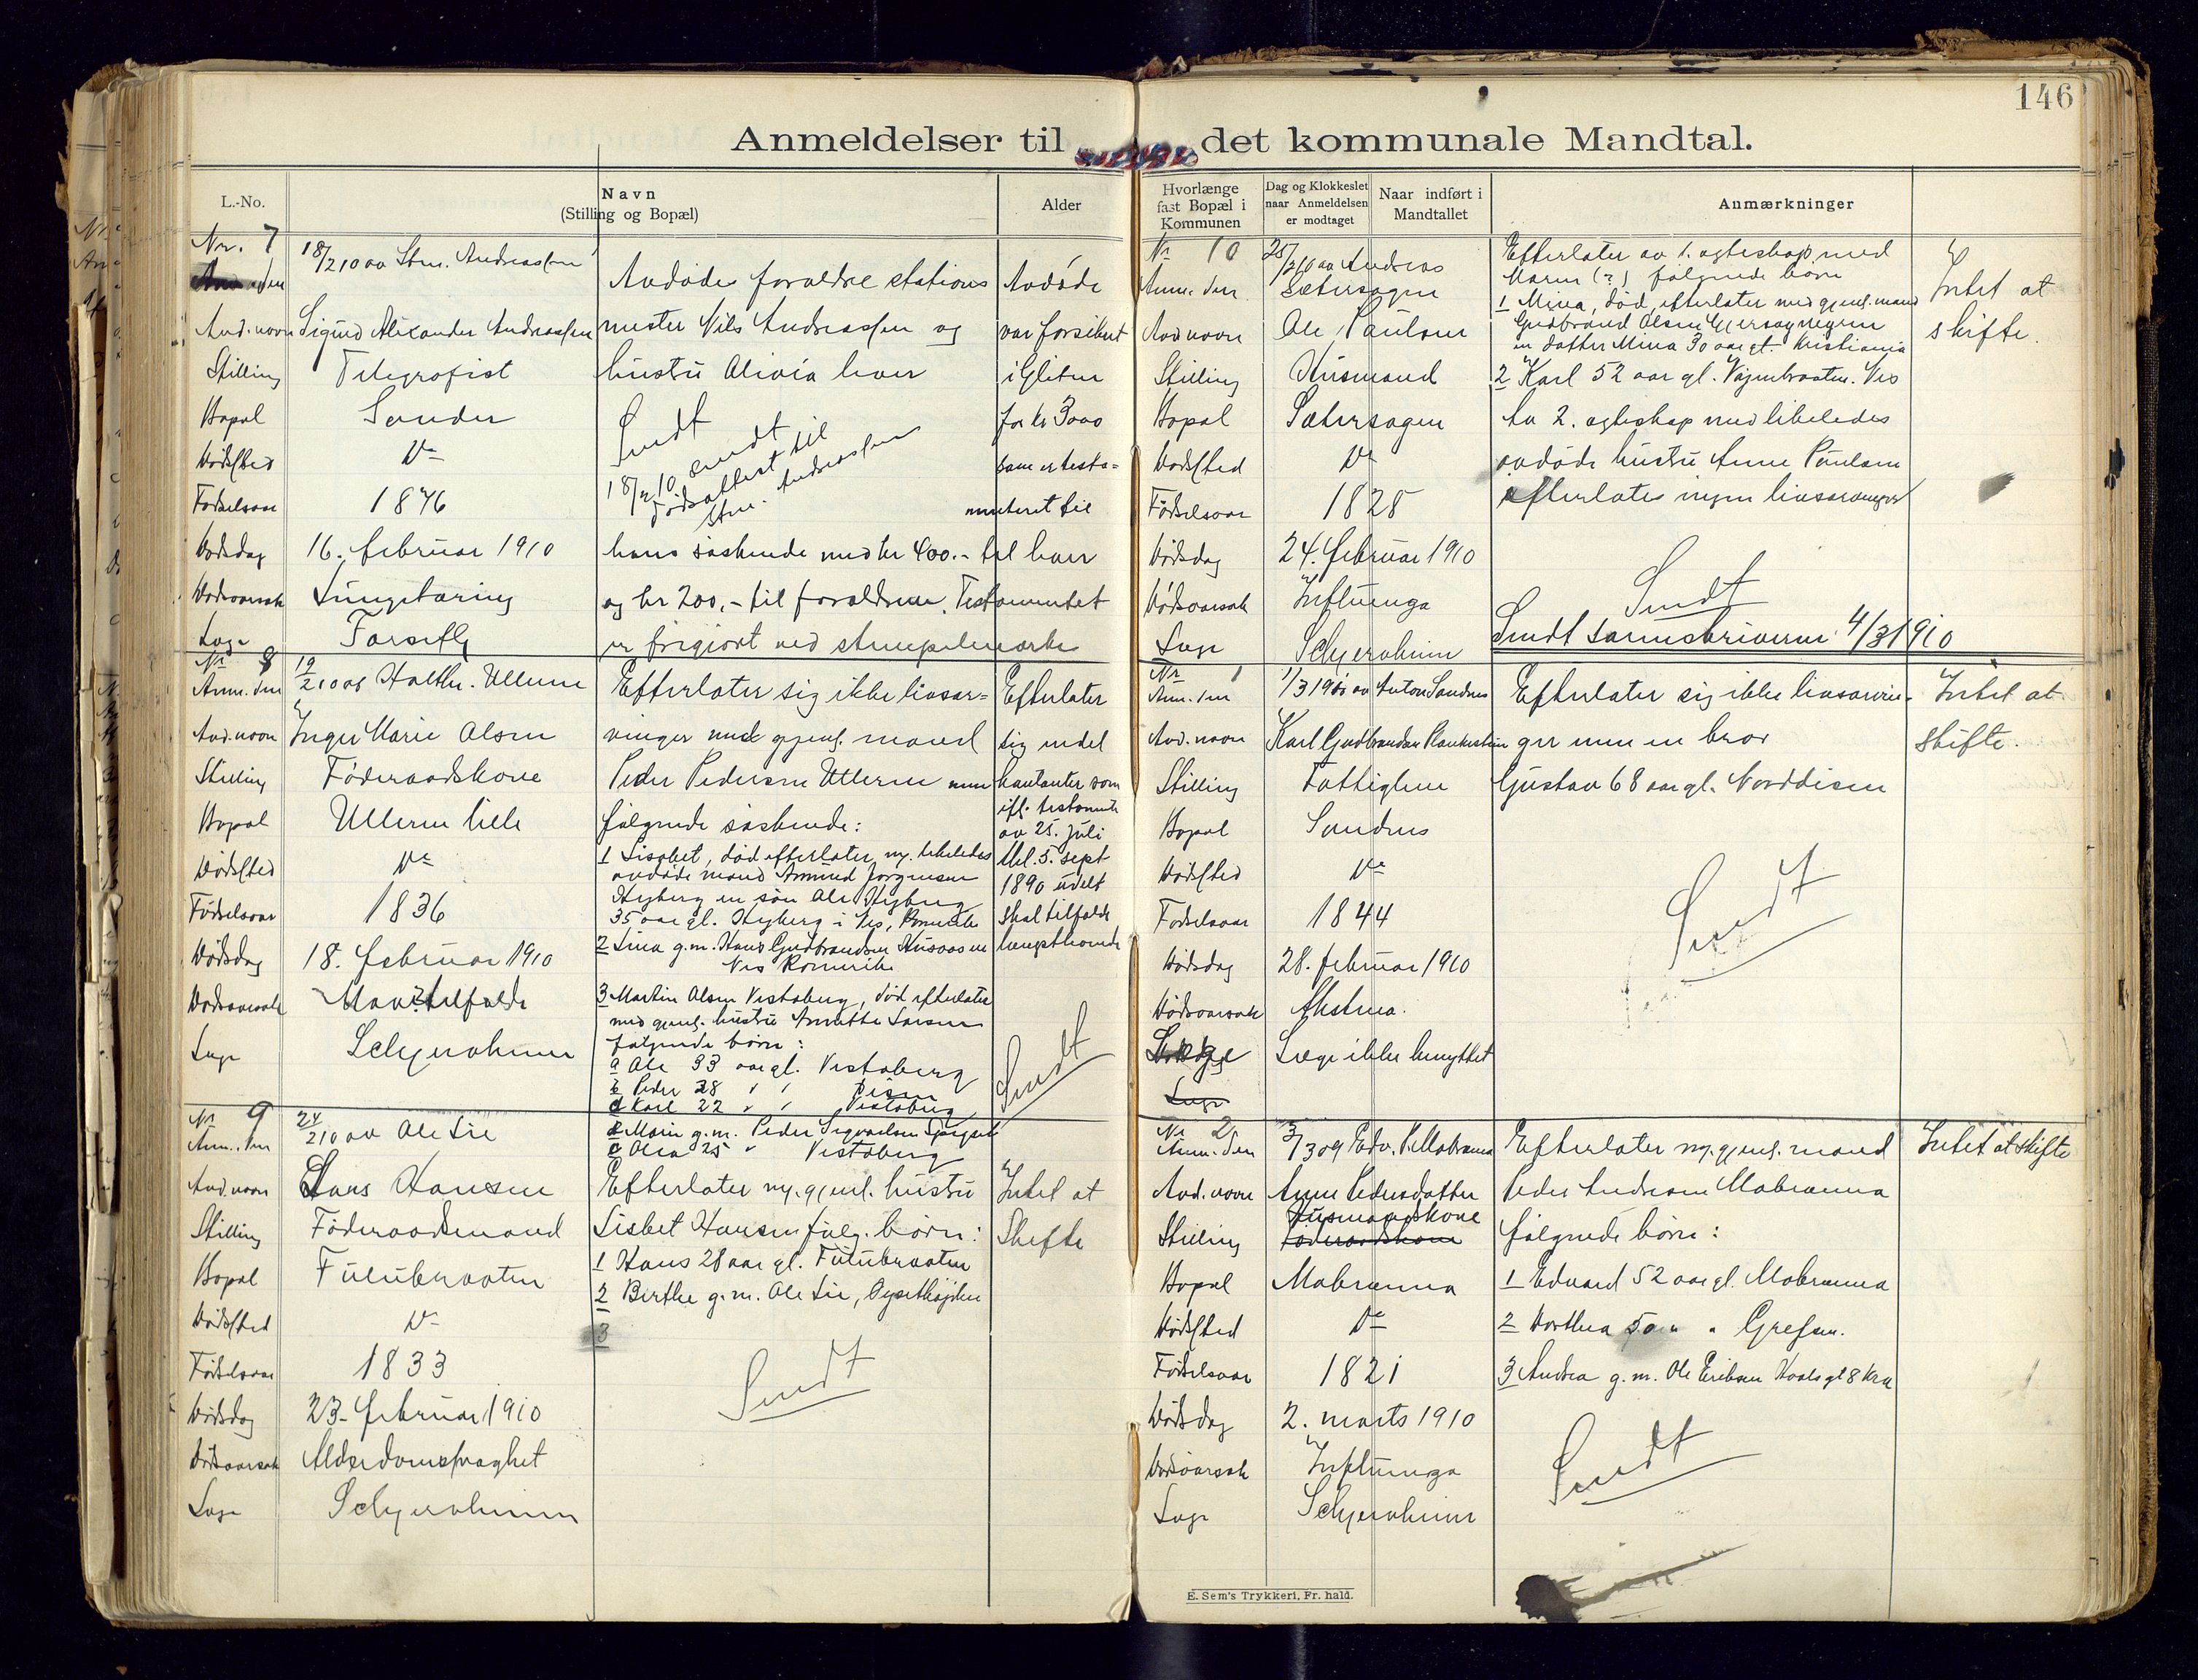 146
Anmeldelser til det kommunale Mandtal.
L.-No.
Navn
(Stilling og Bopæl)
Alder
Hvorlænge
fast Bopæl i
Kommunen
Dag og Klokkeslet
naar Anmeldelsen
er modtaget
Naar indført i
Mandtallet
Anmærkninger
Nr. 7
18/2 10 av Stm. Andreassen
Avd. navn Sigurd Alexander Andreassen
Stilling Telegrafist
Bopæl Sander
Dødssted Do
Fødselsaar 1876
Dødsdag 16. februar 1910
Dødsaarsak Lungetæring
Læge Farseth
Avdødes forældre stations
mester Nils Andreassen og
hustru Olivia lever
Sendt
18/2 10 sendt
dødsattest til
Stm. Andreassen
hans søskende med kr 400.- til hver
og kr 200,- til forældrene. Testamentet
er frigjort ved stempelmerke
Avdøde
var forsikret
i Glitne
for kr 3000
som er testa-
menteret til
Nr 8
Anm. den 19/2 10 av Halthe. Ullern
Avd. navn Inger Marie Olsen
Stilling Føderaadskone
Bopæl Ullern lille
Dødssted Do
Fødselsaar 1836
Dødsdag 18. februar 1910
Dødsaarsak Mavetilfælde
Læge Schjervheim
Efterlater sig ikke livsar-
vinger med gjenl. mand
Peder Pedersen Ullern men
følgende søskende:
1 Lisabet, død efterlater m. likeledes
avdøde mand Amund Jørgensen
Hyberg en søn Ole Hyberg
35 aar gl. Hyberg i Nes, Romerike
2 Lina g.m. Hans Gudbrandsen Husaasen
Nes Romerike
3 Martin Olsen Vestaberg, død efterlater
med gjenl. hustru Annette Larsen
følgende børn:
a Ole 33 aar gl. Vestaberg
b Peder 28 " " Disen
c Karl 22 " " Vestaberg
d Marie g.m. Peder Sigvartsen
e Olea 25 " Vestaberg
Efterlater
sig endel
kontanter som
ifl. testamente
av 25. juli
thl. 5. sept
1890 udelt
skal tilfalde
længstlevende
Sendt
Nr 9
Anm. den 24/2 10 av Ole Lie
Avd. navn Hans Hansen
Stilling Føderaadsmand
Bopæl Fulubraaten
Dødssted Do
Fødselsaar 1833
Dødsdag 23. februar 1910
Dødsaarsak Alderdomssvaghet
Læge Schjervheim
Efterlater m. gjenl. hustru
Lisbet Hansen følg. børn:
1 Hans 28 aar gl. Fulubraaten
2 Berthe g.m. Ole Lie, Dysethøgden
3
Sendt
Intet at
Skifte
Nr 10
Anm. den 25/2 10 av Andreas
Sætersagen
Avd navn Ole Paulsen
Stilling Husmand
Bopæl Sætersagen
Dødssted Do
Fødselsaar 1828
Dødsdag 24. februar 1910
Dødsaarsak Influenza
Læge Schjervheim
Efterlater av 1. ægteskap med
Maren (?) følgende børn
1 Mina, død, efterlater med gjenl. mand
Gudbrand Olsen
en datter Mina 30 aar gl. Kristiania
2 Karl 52 aar gl. Vajerbraaten. Nes
Av 2. ægteskap med likeledes
avdøde hustru Anne Paulsen
efterlates ingen livsarvinger
Sendt
Sendt sorenskriveren 4/3 1910
Intet at
skifte.
Nr 1
Anm. den 1/3 1910 av Anton Sandnes
Avd. navn Karl Gudbrandsen
Stilling Fattiglem
Bopæl Sandnes
Dødssted Do
Fødselsaar 1844
Dødsdag 28. februar 1910
Dødsaarsak Astma.
Læge ikke benyttet
Læge
Efterlater sig ikke livsarvin-
ger men en bror
Gustav 68 aar gl. Norddisen
Sendt
Intet at
skifte.
Nr 2
Anm. den 3/3 09 Edv. P. Mobrænna
Avd. navn Anne Pedersdatter
Stilling Husmandskone
Føderaadskone
Bopæl Mobrænna
Dødssted Do
Fødselsaar 1821
Dødsdag 2. marts 1910
Dødsaarsak Influenza
Læge Schjervheim
Efterlater m. gjenl. mand
Peder Andersen Mobrænna
følgende børn:
1 Edvard 52 aar gl. Mobrænna
2 Dorthea 50 " " Grefsen.
3 Andrea g.m. Ole Eriksen
Sendt
Intet at skifte
E. Sem's Trykkeri, Fr. hald.